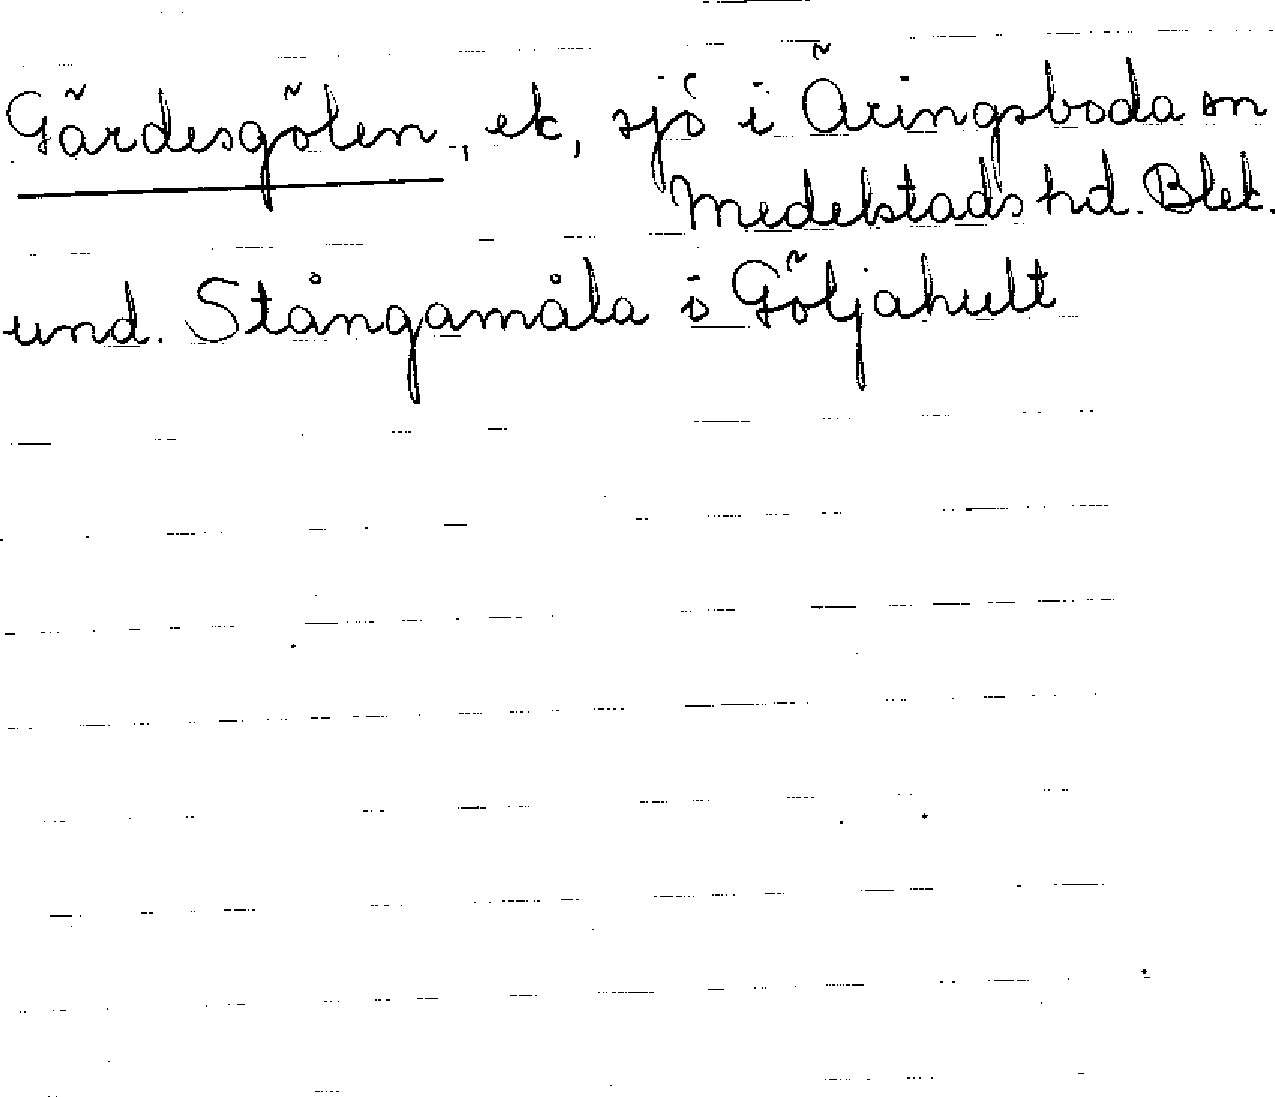 Gärdesgölen, ek, sjö i Äringsboda sn
Medelstads hd. Blek.
und. Stångamåla o Göljahult